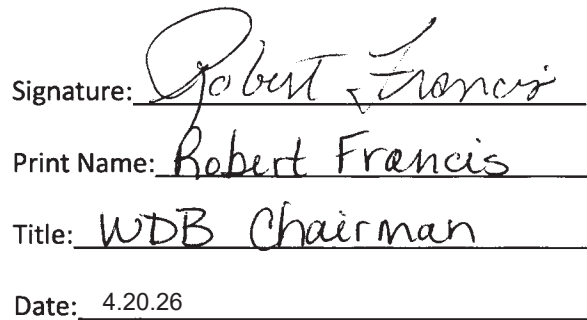 Signature: Robert Francis
Print Name: Robert Francis
Title: WDB Chairman
Date: 4.20.26